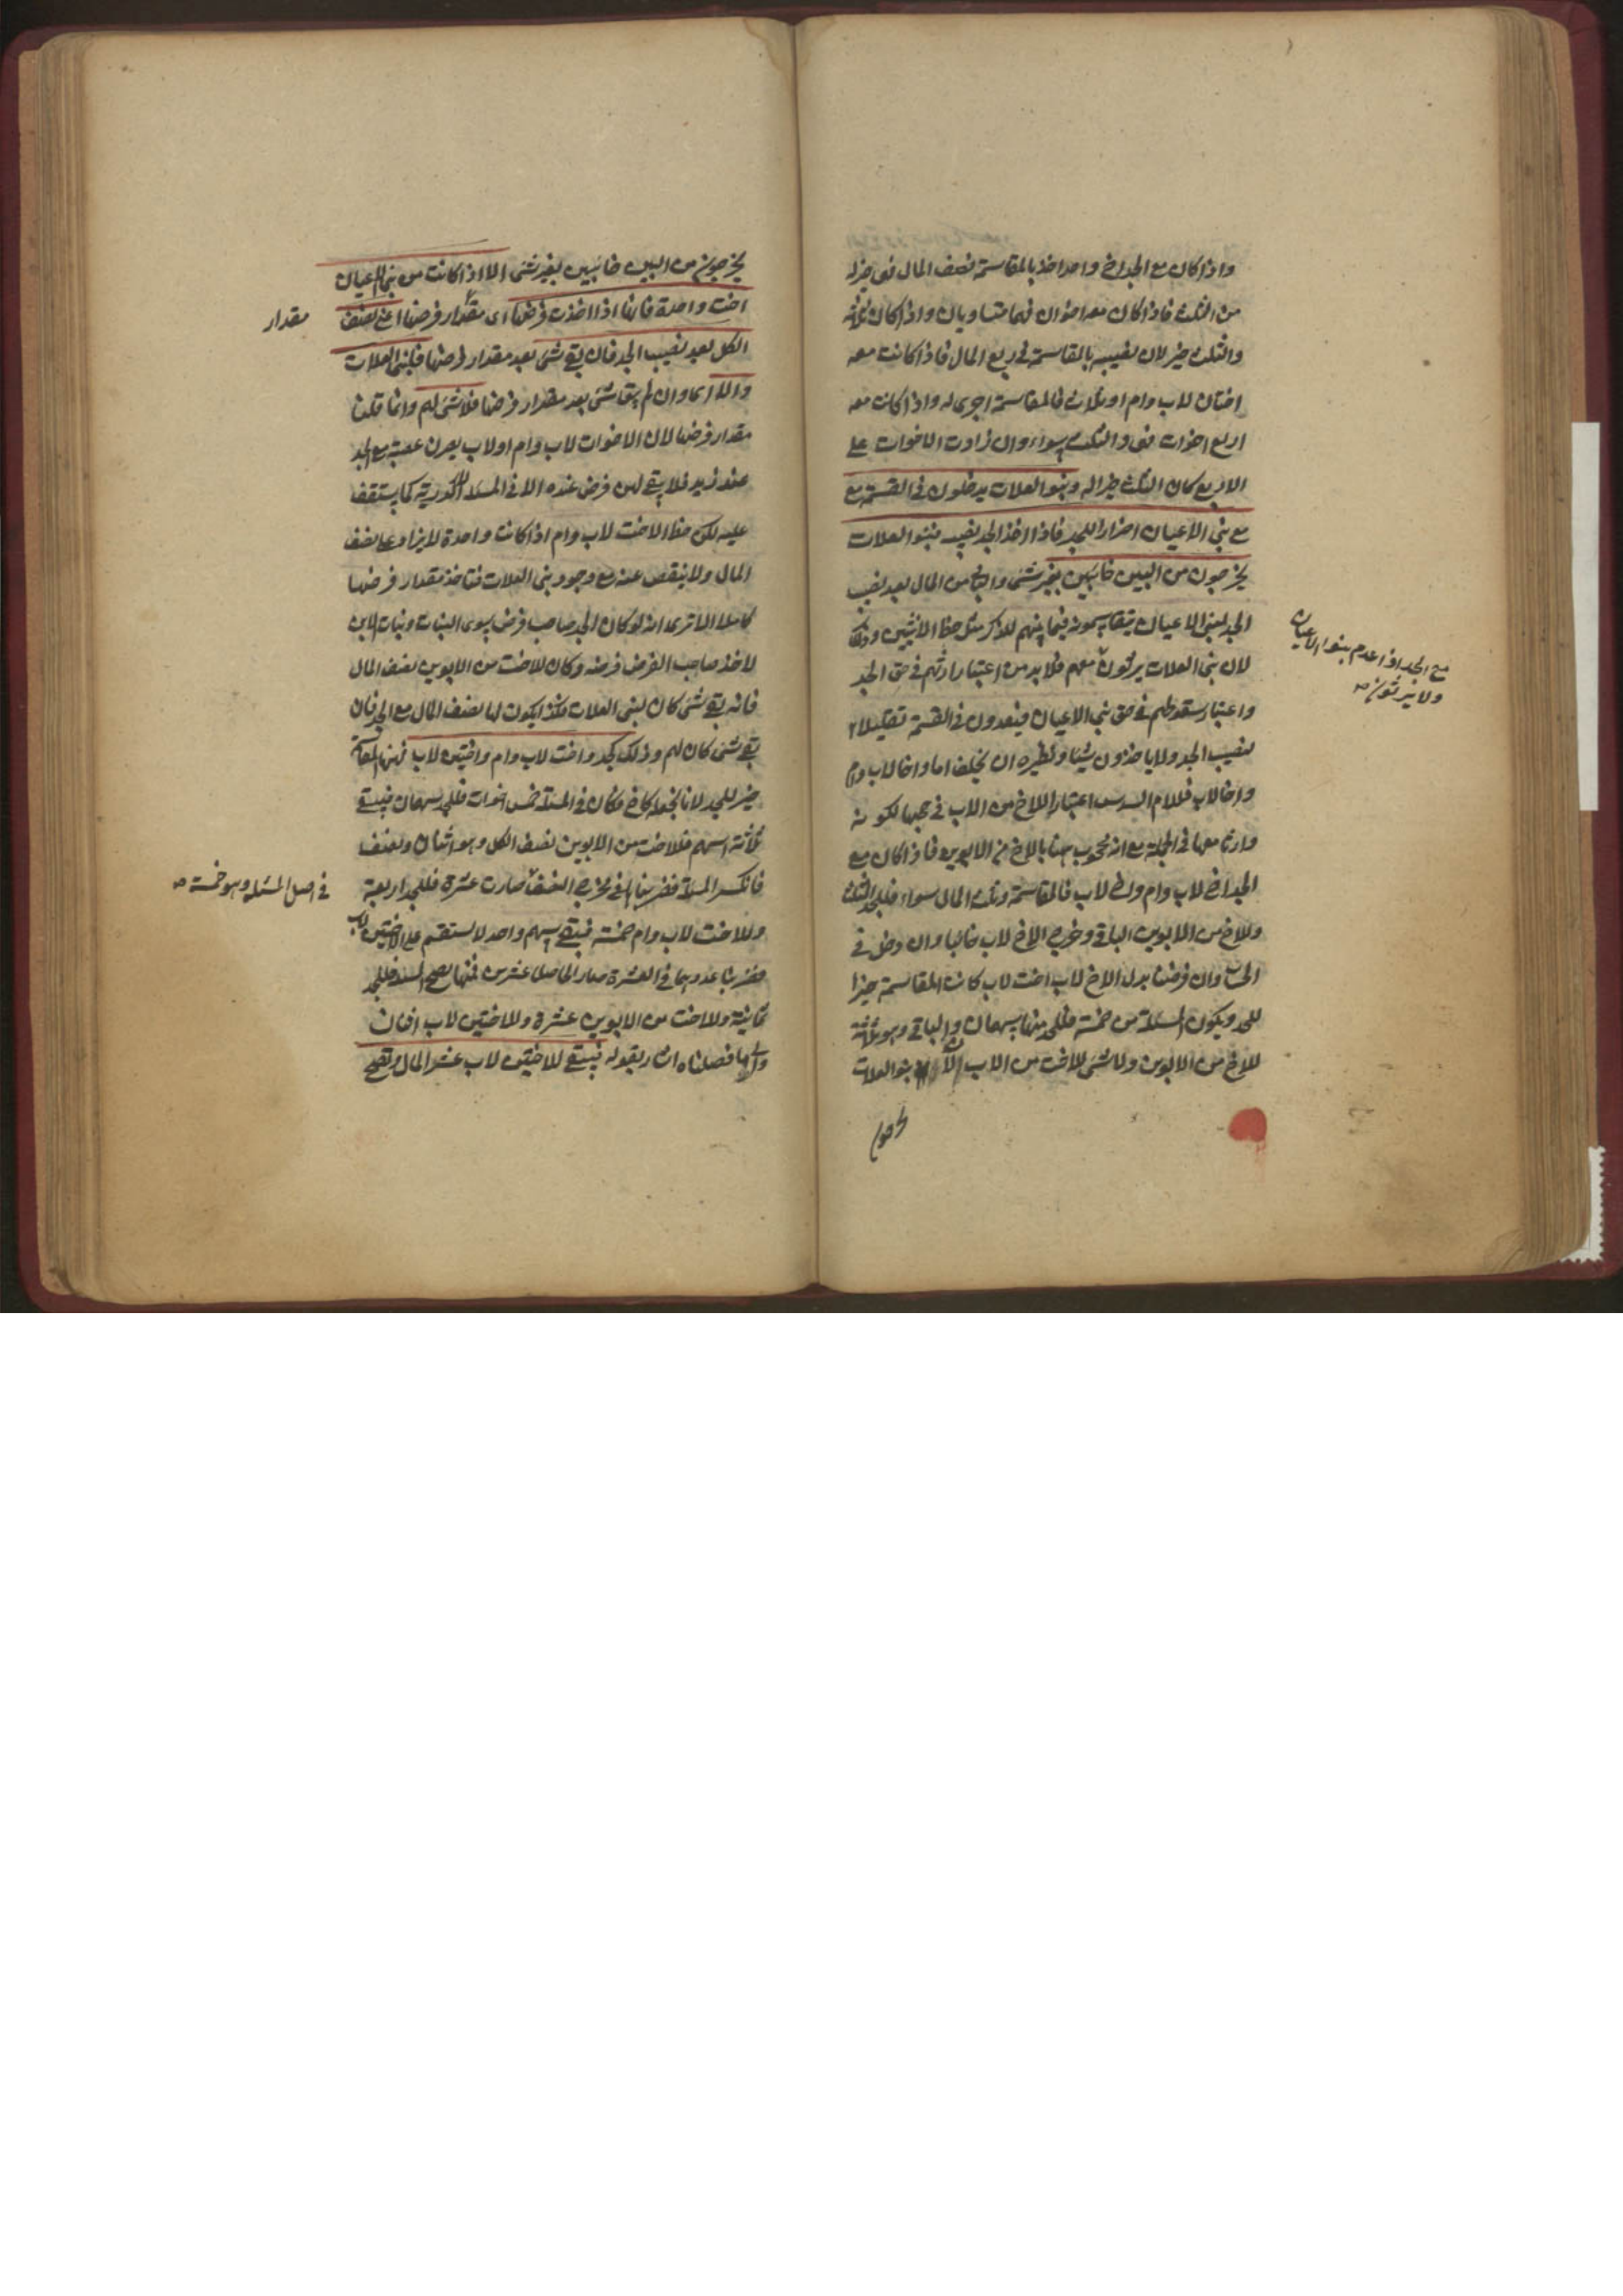 واذا كان مع الجد اخ واحد اخذ بالمقاسمة نصف المال فهى خير له
من الثلث فاذا كان معه اخوان فهما متساويان واذا كان ثلاثة
والثلث خير لان نصيبه بالمقاسمة فى ربع المال فاذا كانت معه
اختان لاب وام او ثلاث فالمقاسمة اجرى له واذا كانت معه
اربع اخوات فهى والثلث سواء وان زادت الاخوات على
الاربع كان الثلث خيرا له وبنو العلات يدخلون فى القسمة مع
مع بنى الاعيان اضرارا للجد فاذا اخذ الجد نصيبه فبنو العلات
يخرجون من البين خائبين بغير شئ والباقى من المال بعد نصيب
الجد لبنى الاعيان يتقاسمونه فيما بينهم للذكر مثل حظ الانثيين وذلك
لان بنى العلات يرثون معهم فلا بد من اعتبار ارثهم فى حق الجد
مع الجد اذا عدم بنوا الاعيان
ولا يرثون
واعتبار سقوطهم فى حق بنى الاعيان فيعدون فى القسمة تقليلا
لنصيب الجد ولا ياخذون شيئا ونظيره ان يخلف اما واخا لاب وام
واخا لاب فللام السدس اعتبارا للاخ من الاب فى حجبها لكونه
وارثا معها فى الجملة مع انه محجوب هنا بالاخ من الابوين فاذا كان مع
الجد اخ لاب وام واخ لاب فالمقاسمة وثلث المال سواء فللجد الثلث
وللاخ من الابوين الباقى وخرج الاخ لاب خائبا وان دخل فى
الحساب وان فرضنا بدل الاخ لاب اخت لاب كانت المقاسمة خيرا
للجد ويكون المسئلة من خمسة فللجد منها سهمان والباقى وهو ثلاثة
للاخ من الابوين ولا شئ للاخت من الاب لان بنو العلات
يخرجون
يخرجون من البين خائبين بغير شئ الا اذا كانت من بنى الاعيان
اخت واحدة فانها اذا اخذت فرضها اى مقدار فرضها اعنى نصف
مقدار
الكل بعد نصيب الجد فان بقى شئ بعد مقدار فرضها فلبنى العلات
والا اى وان لم يبق شئ بعد مقدار فرضها فلا شئ لهم وانما قلنا
مقدار فرضها لان الاخوات لاب وام او لاب يصرن عصبة مع الجد
عند زيد فلا يبقى لهن فرض عنده الا فى المسئلة الاكدرية كما ستقف
عليه لكن حظ الاخت لاب وام اذا كانت واحدة لا يزاد على نصف
المال ولا ينقص عنه مع وجود بنى العلات فتاخذ مقدار فرضها
كاملا الا ترى انه لو كان الجد صاحب فرض سوى البنات وبنات الابن
لاخذ صاحب الفرض فرضه وكان للاخت من الابوين نصف المال
فانه بقى شئ كان لبنى العلات فكذا يكون لها نصف المال مع الجد فان
بقى شئ كان لهم وذلك كجد واخت لاب وام واختين لاب فهنا المقاسمة
خير للجد لانا نجعله كاخ فكان فى المسئلة خمس اخوات فللجد سهمان فيبقى
ثلاثة اسهم فللاخت من الابوين نصف الكل وهو اثنان ونصف
فانكسر المسئلة فضربنا مخرج النصف صارت عشرة فللجد اربعة
فى اصل المسئلة وهو خمسة
وللاخت لاب وام خمسة فيبقى سهم واحد لا يستقيم على الاختين لاب
فضربنا عددهما فى العشرة صار الحاصل عشرين فمنها يصح المسئلة فللجد
ثمانية وللاخت من الابوين عشرة وللاختين لاب اثنان
والى ما فصلناه اشار بقوله فيبقى للاختين لاب عشر المال وتصح